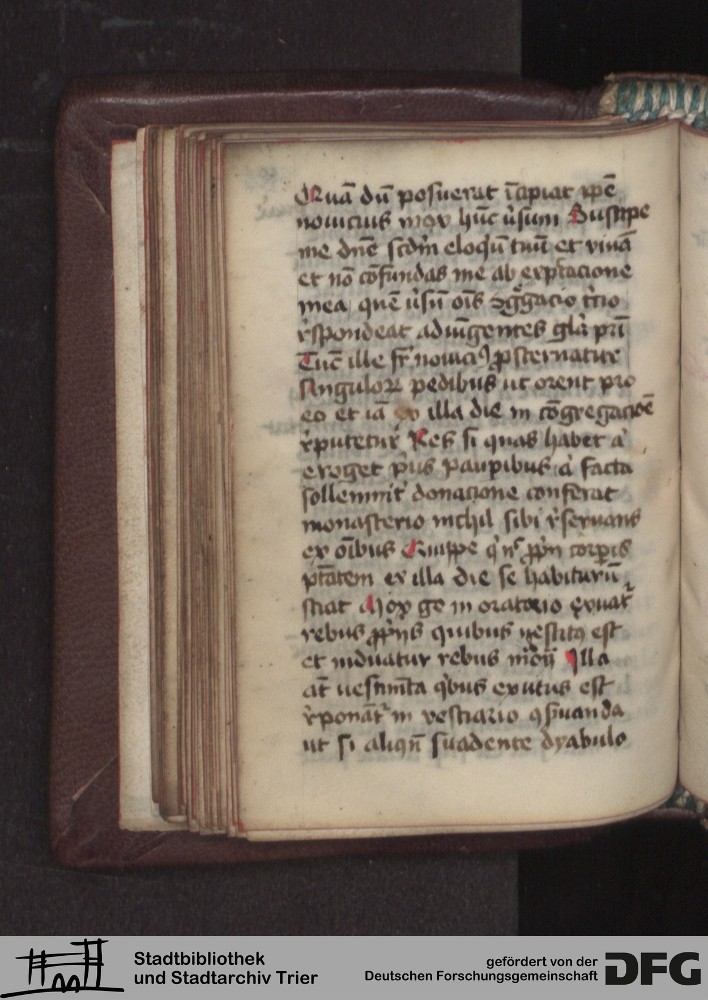 Quā dū posuerit īcipiat ipē
nouicius mox hūc v̄sum Suscipe
me dn̄e scdm̄ eloqm̄ tuū et viuā
et nō cōfundas me ab exp̄tacione
mea quē v̄sū oīs ɔg̃gacio t̄cio
r̄spondeat adiūgentes gl̄a pr̄i
Tūc ille fr̄ nouiciꝰ ꝓsternatur
singuloꝝ pedibus ut orent pro
eo et iā ex illa die in cōgregacōe
r̄putetur̄ Res si quas habet a᷑
eroget p̄us paupibus a᷑ facta
sollemnit̄ donacione conferat
monasterio nichil sibi r̄seruans
ex oībus Quippe qͥ nͨ ꝓpn̄ corporis
ptātem ex illa die se habiturū
sciat Mox g̊ in oratorio exuat̄
rebus ꝓpͥis quibus vestitꝰ est
et induatur rebus mōii Illa
at̄ uestimt̄a qͥbus exutus est
r̄ponāt̄ in vestiario ꝯseruanda
ut si aliqn̄ suadente dyabulo
Stadtbibliothek
und Stadtarchiv Trier
gefördert von der
Deutschen Forschungsgemeinschaft
DFG